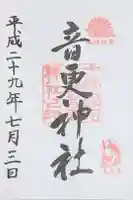 音更神社
平成二十九年七月三日